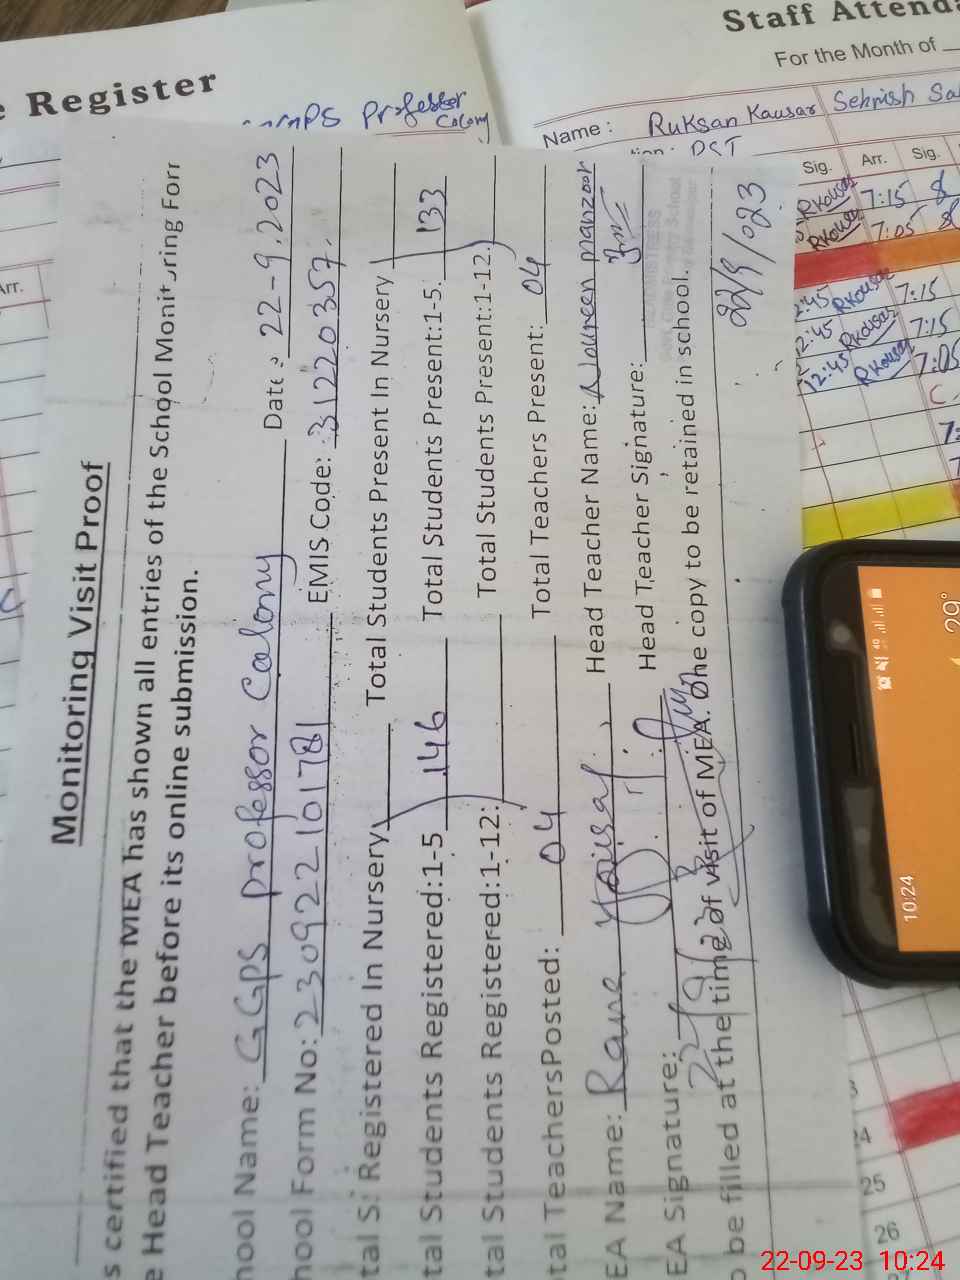 e Register
Professor
Colony
Staff Attend
For the Month of
Name: Ruksan Kausar Sehrish Sa
DST
Sig. Arr. Sig.
RKousar 7:15
RKousar 7:05
2:45 RKousar 7:15
2:45 RKousar 7:15
12:45 RKousar 7:05
Arr.
Monitoring Visit Proof
s certified that the MEA has shown all entries of the School Monitoring Forr
e Head Teacher before its online submission.
hool Name: GGPS Professor Colony Date: 22-9.2023
hool Form No: 230922101781 EMIS Code: 31220357
tal S: Registered In Nursery Total Students Present In Nursery
tal Students Registered:1-5 146 Total Students Present:1-5. 133
tal Students Registered:1-12: Total Students Present:1-12.
tal TeachersPosted: 04 Total Teachers Present: 04
EA Name: Rana Head Teacher Name: Noureen Manzoor
EA Signature: Head Teacher Signature:
22/9/
o be filled at the time of visit of MEA. One copy to be retained in school.
22/9/023
10:24
29°
24
25
26
22-09-23 10:24